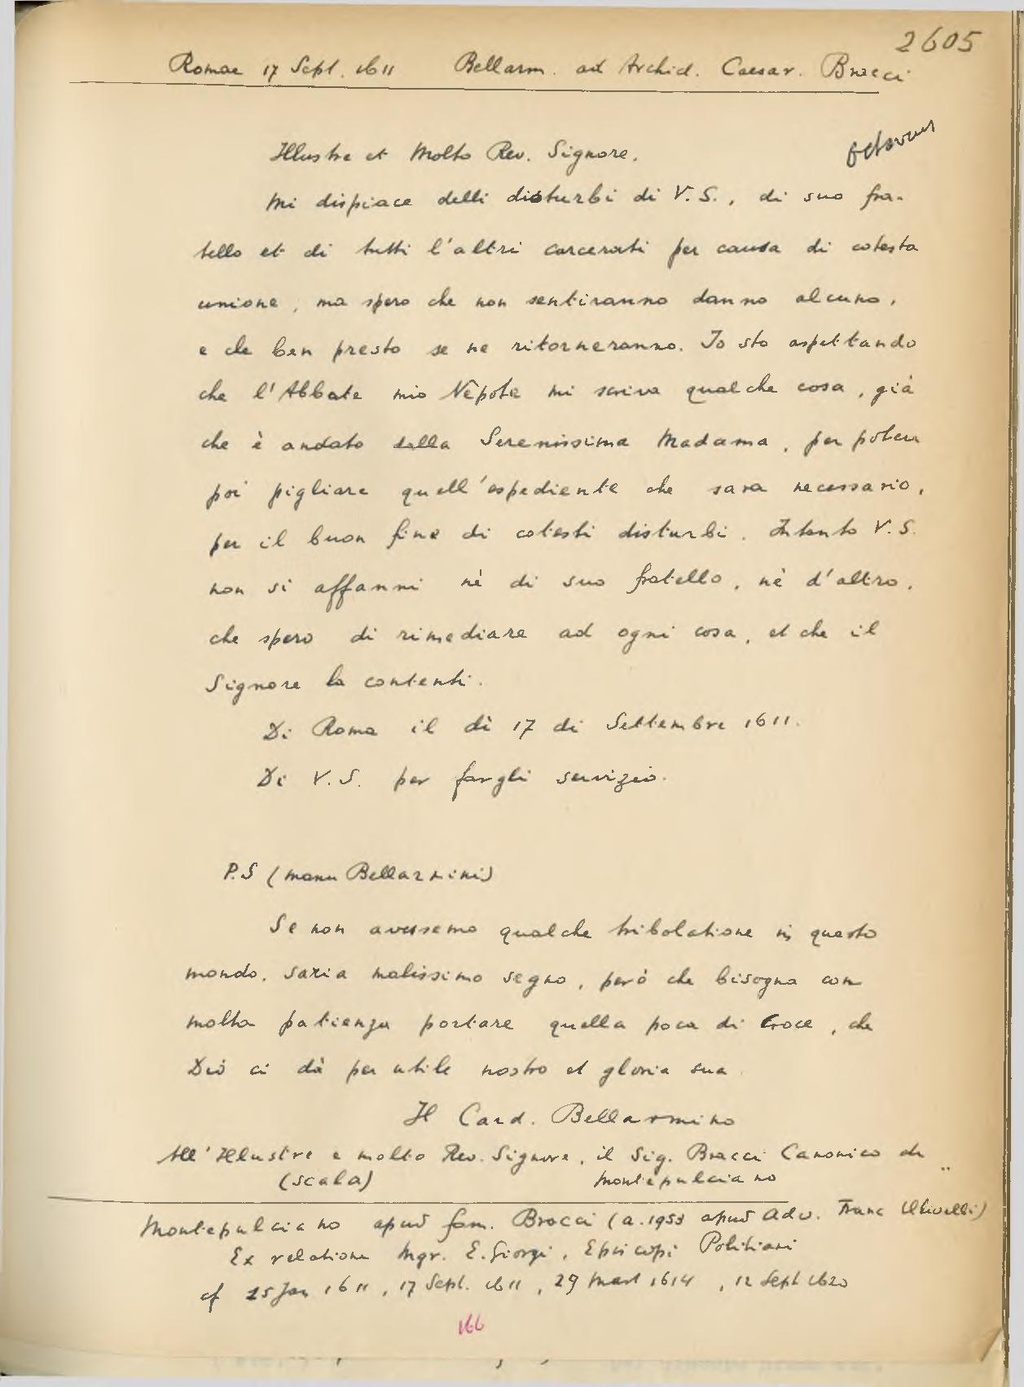 2605
Romae 17 Sept. 1611 Bellarm. ad Archid. Caesar. Bracci
octavus
Illustre et Molto Rev. Signore.
Mi dispiace delli disturbi di V.S., di suo fra-
tello et di tutti l'altri carcerati per causa di cotesta
unione, ma spero che non sentiranno danno alcuno,
e che ben presto se ne ritorneranno. Io sto aspettando
che l'Abbate mio Nepote mi scriva qualche cosa, già
che è andato dalla Serenissima Madama, per poter
poi pigliare quell'espediente che sara necessario,
per il buon fine di cotesti disturbi. Intanto V.S.
non si affanni nè di suo fratello, nè d'altro,
che spero di rimediare ad ogni cosa, et che il
Signore la contenti.
Di Roma il dì 17 di Settembre 1611.
Di V.S. per fargli servizio.
P.S (manu Bellarmini)
Se non avessemo qualche tribolatione in questo
mondo, saria malissimo segno, però che bisogna con
molta patienza portare quella poca di Croce, che
Dio ci dà per utile nostro et gloria sua
Il Card. Bellarmino
All'Illustre e molto Rev. Signore, il Sig. Bracci Canonico di
(scala) Montepulciano
Montepulciano apud fam. Bracci (a. 1953 apud Adv. Franc
Ex relatione Mgr. E. Giorgi, Episcopi Politiani
cf 25 Jan 1611, 17 Sept. 1611, 29 Mart 1614, 12 Sept 1620
166